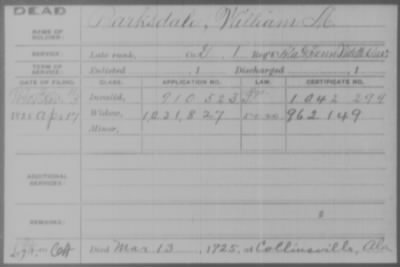 DEAD
NAME OF SOLDIER: Barksdale, William M.
SERVICE: Late rank, Co. D, 1 Reg't
TERM OF SERVICE: Enlisted , 1 Discharged , 1
DATE OF FILING. CLASS. APPLICATION NO. LAW. CERTIFICATE NO.
Invalid, 910 523 1042 299
Apr 17 Widow, 1,231,827 962149
Minor,
ADDITIONAL SERVICES:
REMARKS:
Died Mar 13, 1925, at Collinsville, Ala